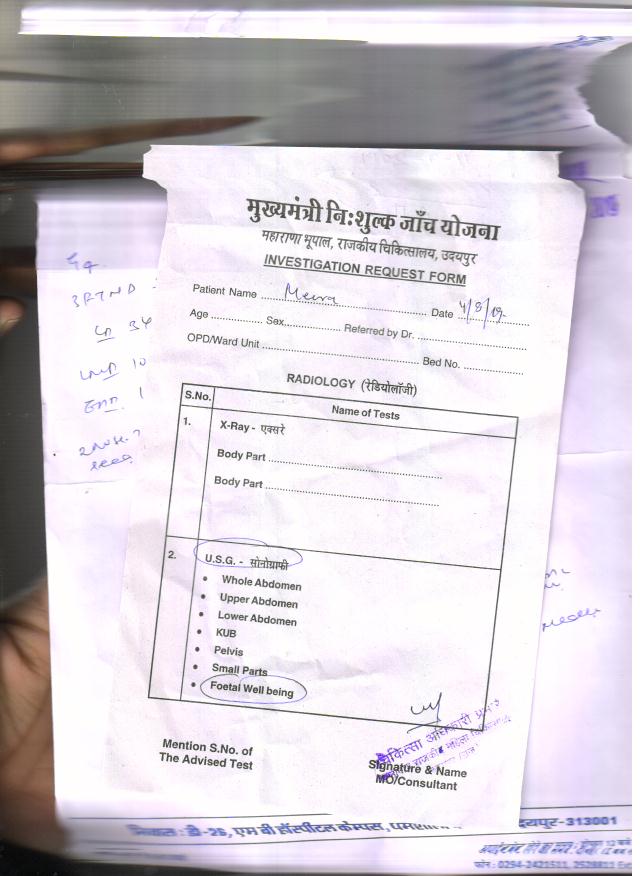 मुख्यमंत्री नि:शुल्क जाँच योजना
महाराणा भूपाल, राजकीय चिकित्सालय, उदयपुर
INVESTIGATION REQUEST FORM
Patient Name ........ Meera ........ Date 4/8/19
Age ........ Sex ........ Referred by Dr. ........
OPD/Ward Unit ........ Bed No. ........
RADIOLOGY (रेडियोलॉजी)
S.No. Name of Tests
1. X-Ray - एक्सरे
Body Part ........
Body Part ........
2. U.S.G. - सोनोग्राफी
• Whole Abdomen
• Upper Abdomen
• Lower Abdomen
• KUB
• Pelvis
• Small Parts
• Foetal Well being
Mention S.No. of
The Advised Test
चिकित्सा अधिकारी
Signature & Name
MO/Consultant
निवास : डी-26, एम बी हॉस्पीटल केम्पस, उदयपुर-313001
फोन : 0294-2421511, 2528811